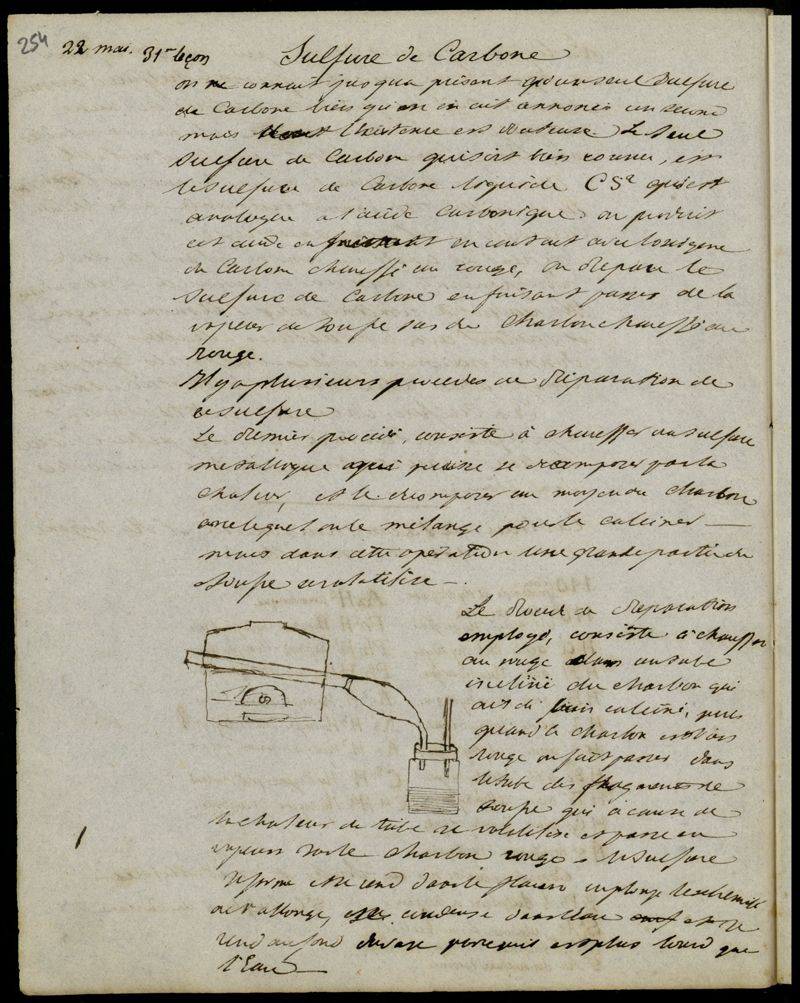 254
22 mai. 31me leçon Sulfure de Carbone
on ne connait jusqua présent qu'un seul Sulfure
de Carbone bien qu'on en ait annoncé un second
mais l'existence est douteuse. Le seul
sulfure de Carbone qui soit bien connu, est
le sulfure de Carbone liquide CS² qui est
analogue a l'acide Carbonique on produit
cet acide en mettant en contact avec l'oxigene
du Carbone chauffé au rouge, on prepare le
sulfure de Carbone en faisant passer de la
vapeur de soufre sur du Charbon chauffé au
rouge.
Il y a plusieurs procedes de préparation de
ce sulfure
Le premier procédé, consiste à chauffer un sulfure
metallique qui puisse se decomposer par la
chaleur, et le decomposer au moyen du charbon
avec lequel on le mélange pour le calciner —
mais dans cette operation une grande partie du
soufre se volatilise —.
Le procédé de preparation
employé, consiste à chauffer
au rouge dans un tube
incliné du charbon qui
ait été bien calciné, puis
quand le charbon est bien
rouge on fait passer dans
le tube des fragments de
soufre qui à cause de
la chaleur du tube se volatilise et passe en
vapeurs sur le charbon rouge — le sulfure
se forme et se rend dans le flacon où plonge l'extremité
de l'allonge, se condense dans l'eau et se
rend au fond du vase parcequ'il est plus lourd que
l'Eau —